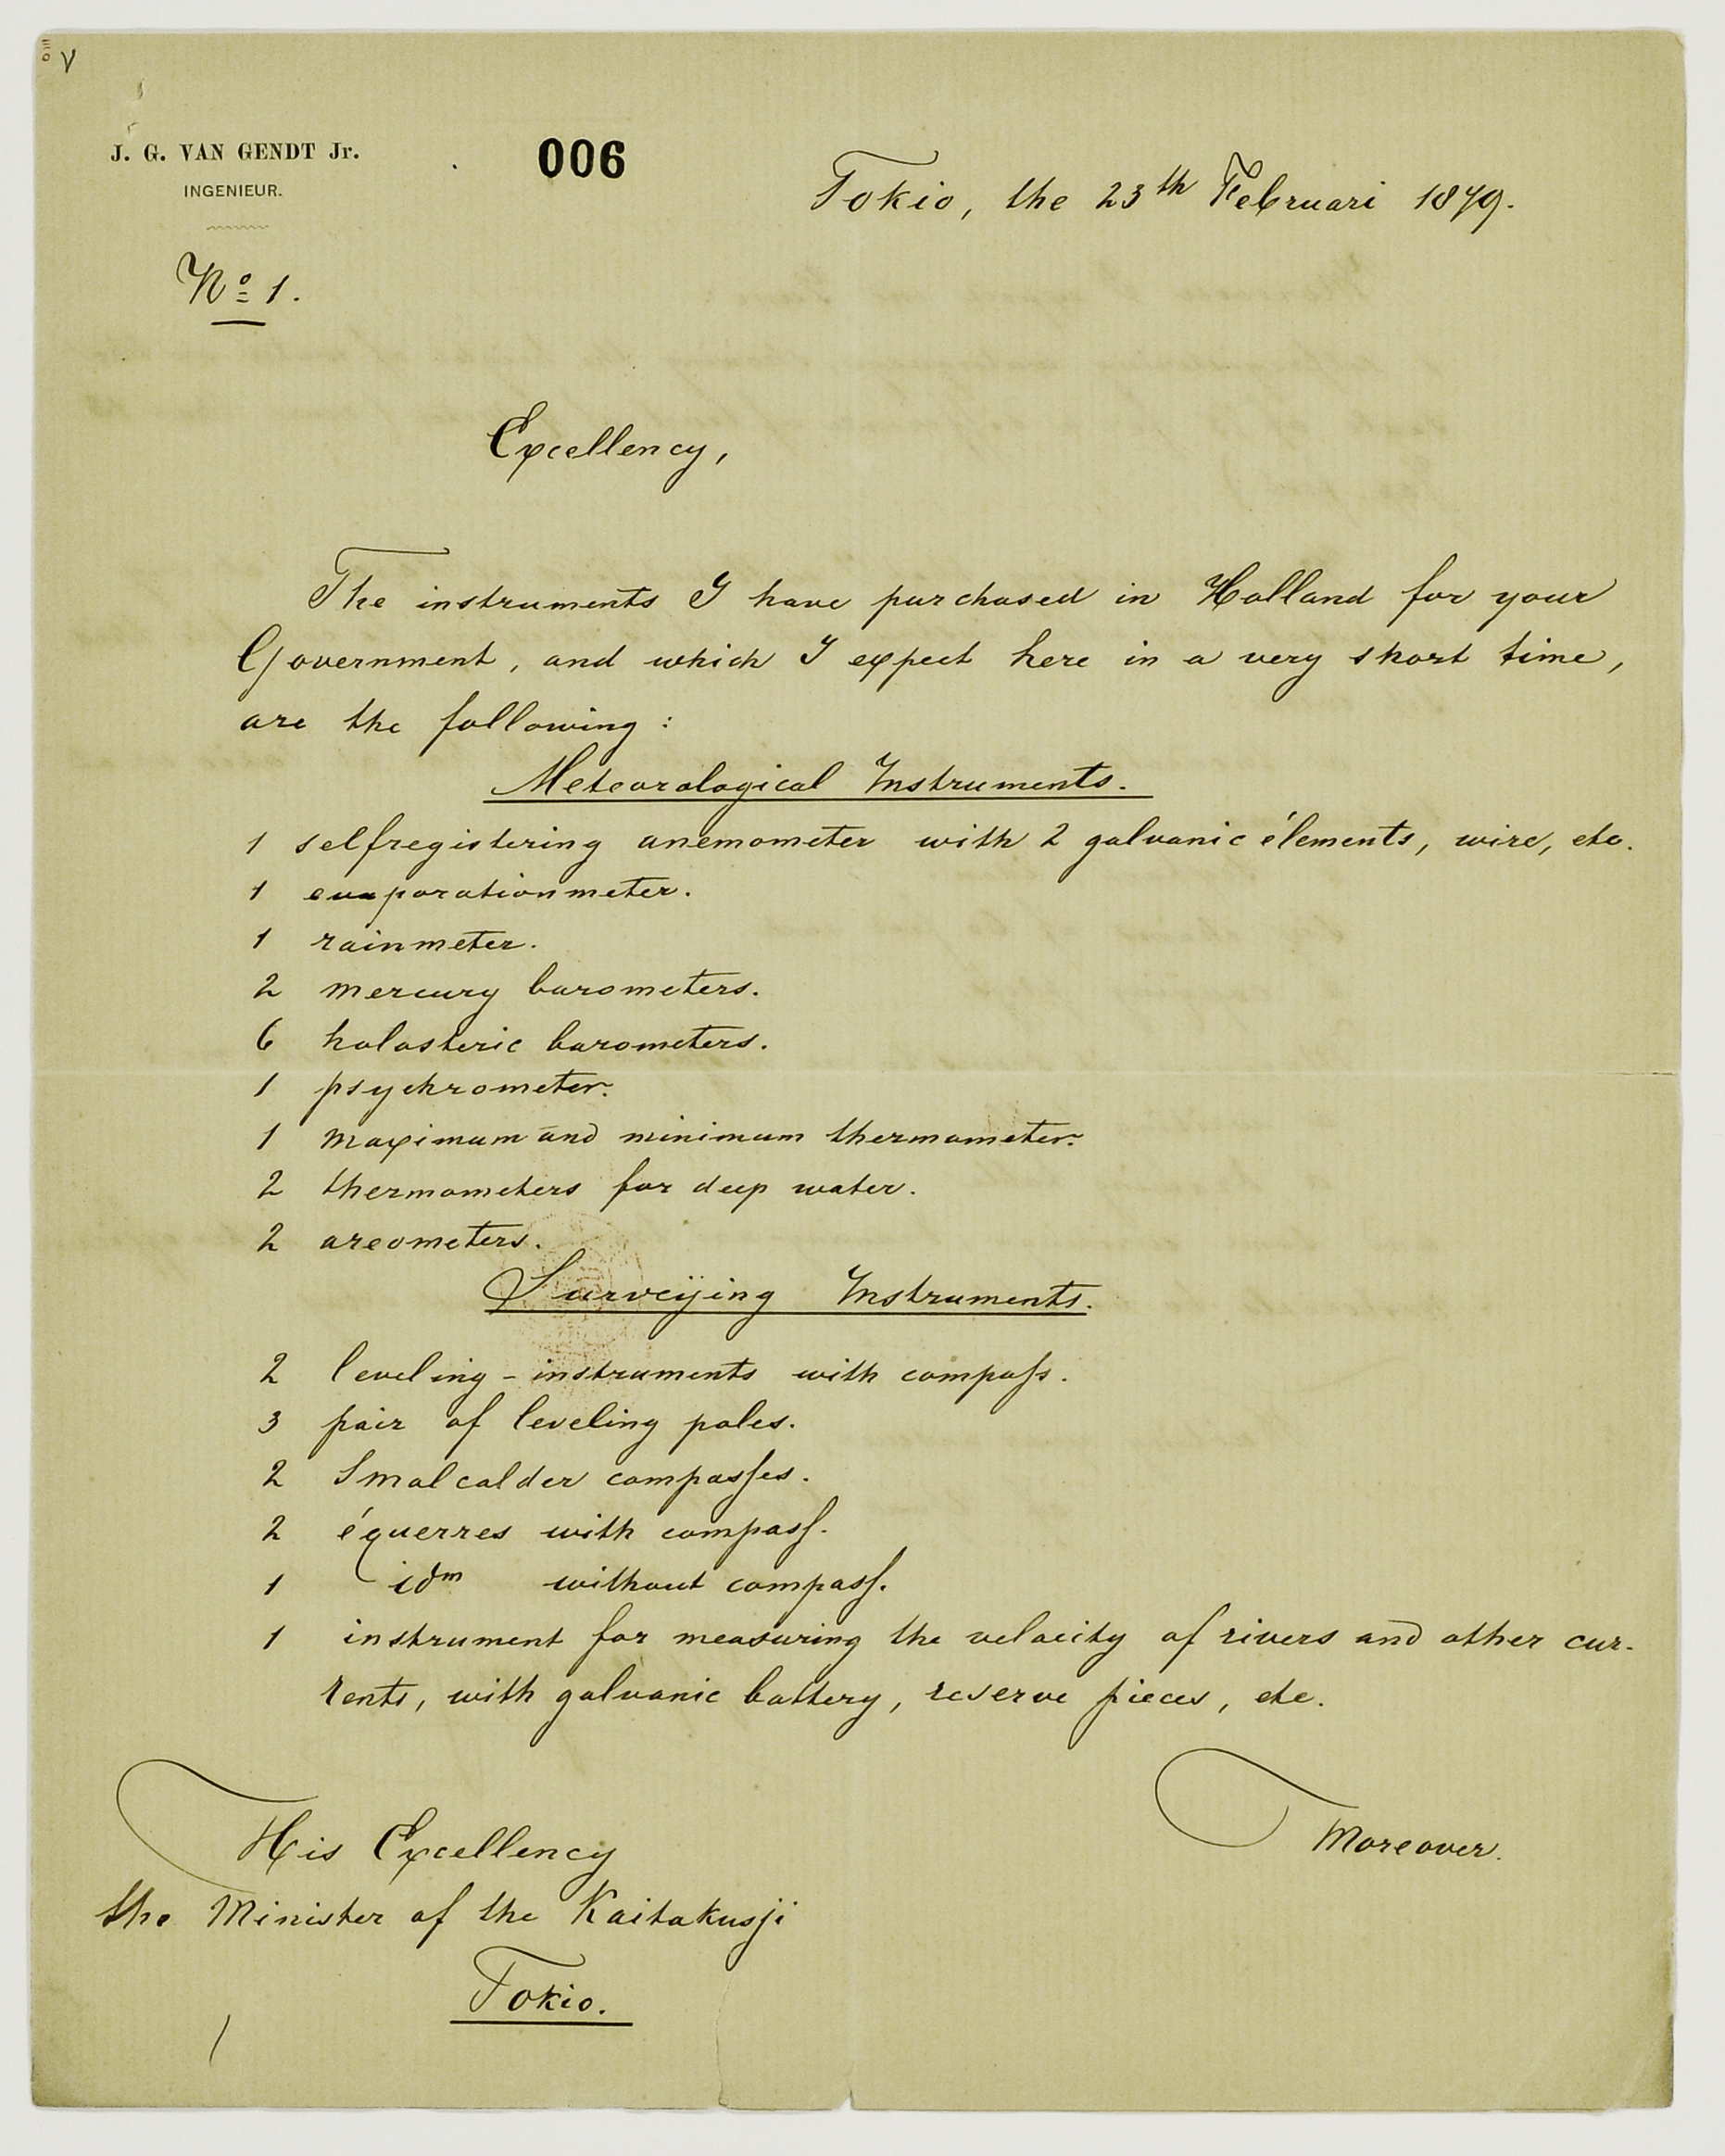 J. G. VAN GENDT Jr.
INGENIEUR.
006
Tokio, the 23th Februari 1879.
No 1.
Excellency,
The instruments I have purchased in Holland for your
Government, and which I expect here in a very short time,
are the following:
Meteorological Instruments.
1 selfregistering anemometer with 2 galvanic élements, wire, etc.
1 evaporationmeter.
1 rainmeter.
2 mercury barometers.
6 holosteric barometers.
1 psychrometer.
1 maximum and minimum thermometer.
2 thermometers for deep water.
2 areometers.
Surveÿing Instruments.
2 leveling-instruments with compass.
3 pair of leveling poles.
2 Smalcalder compasses.
2 équerres with compass.
1 idm without compass.
1 instrument for measuring the velocity of rivers and other cur-
rents, with galvanic battery, reserve pieces, etc.
Moreover.
His Excellency
the Minister of the Kaitakusji
Tokio.